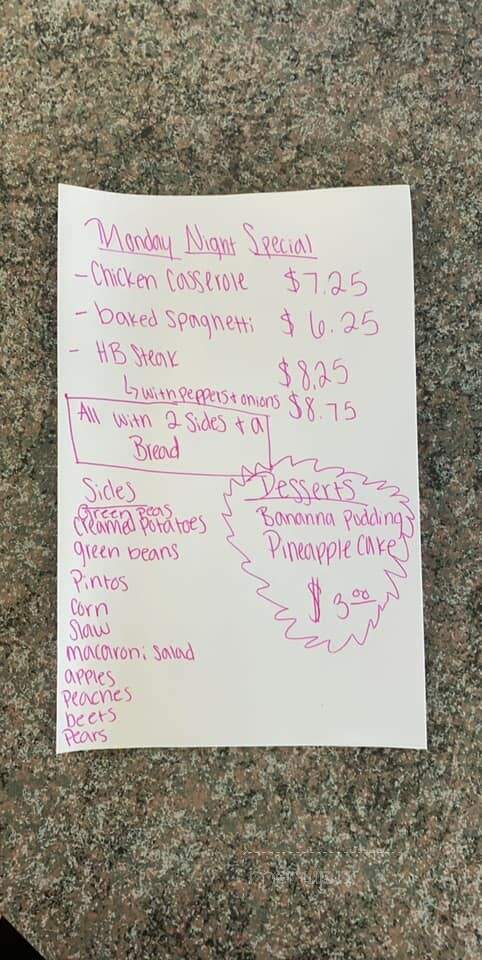 Monday Night Special
- Chicken Casserole $7.25
- baked spaghetti $6.25
- HB Steak $8.25
↳ with peppers + onions $8.75
All with 2 Sides + a
Bread
Sides
Green Peas
Creamed Potatoes
green beans
Pintos
Corn
Slaw
macaroni salad
apples
Peaches
beets
Pears
Desserts
Bananna Pudding
Pineapple Cake
$3.00
menupix